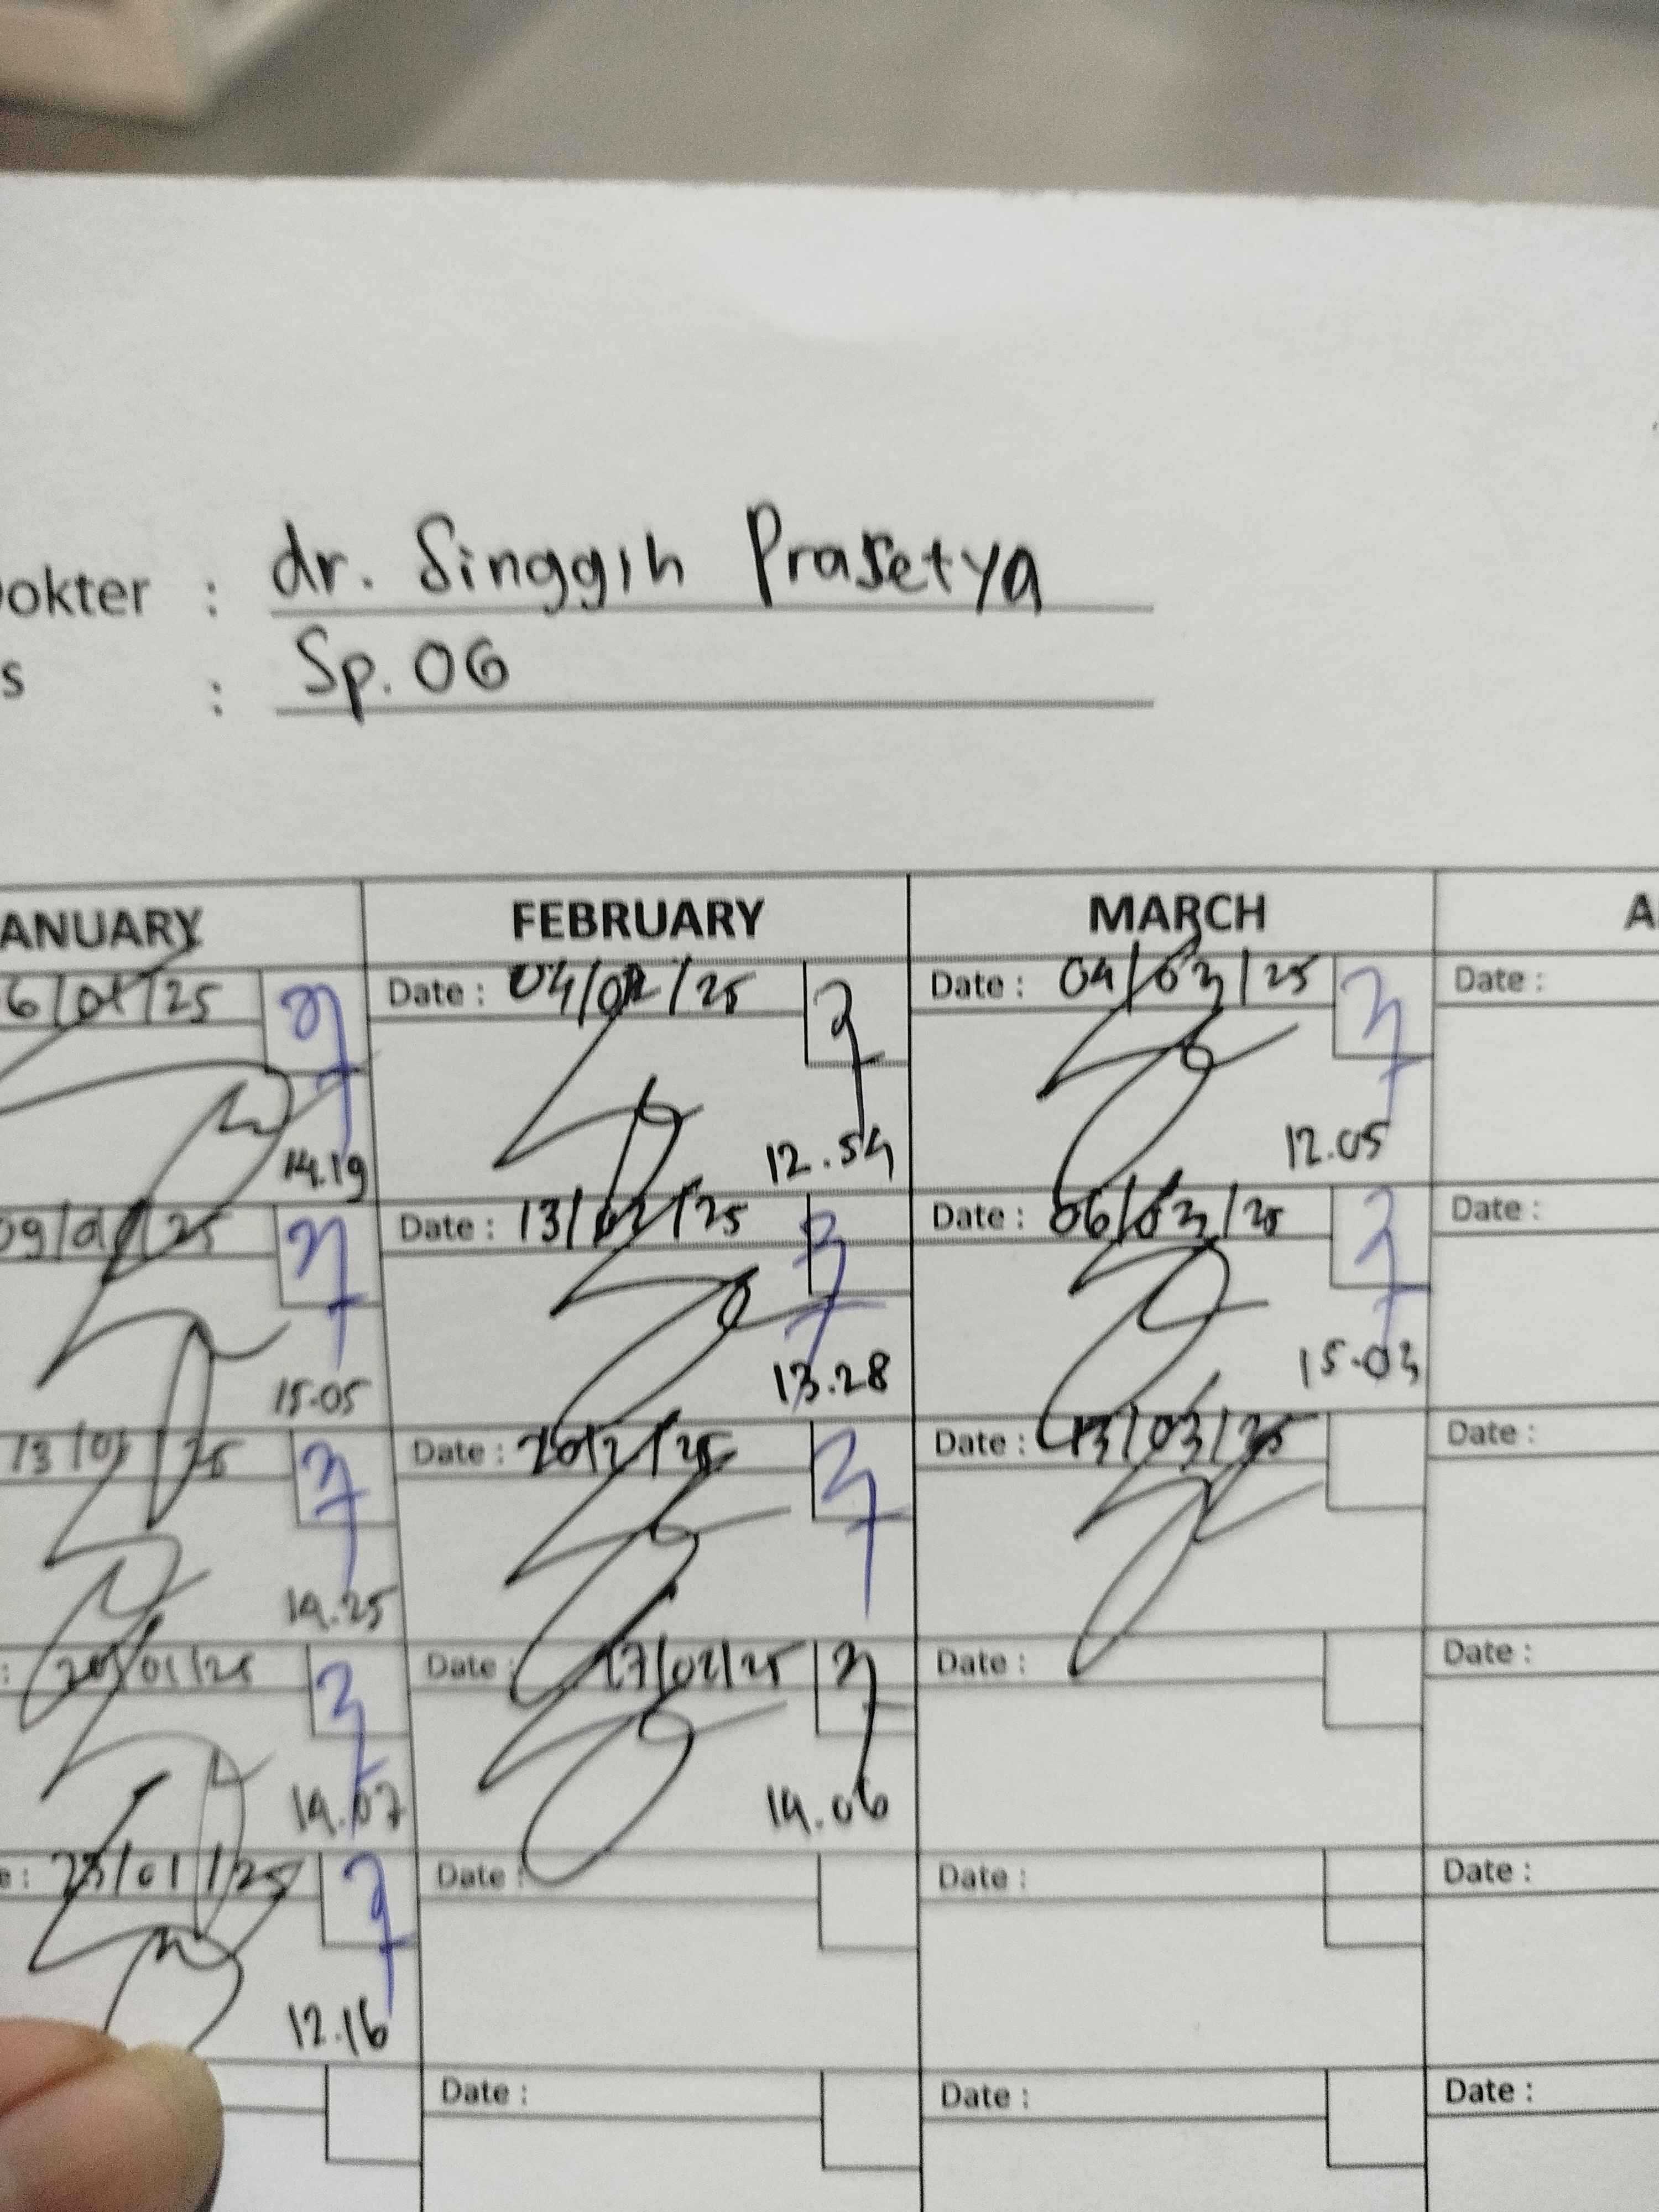 Dokter : dr. Singgih Prasetya
s : Sp. OG
ANUARY FEBRUARY MARCH A
6/01/25 Date : 04/02/25 Date : 04/03/25 Date :
14.19 12.54 12.05
09/01/25 Date : 13/02/25 Date : 06/03/25 Date :
15.05 13.28 15.03
13/01/25 Date : 20/2/25 Date : 13/03/25 Date :
14.25
: 20/01/25 Date : 27/02/25 Date : Date :
14.07 14.06
e : 23/01/25 Date : Date : Date :
12.16
Date : Date : Date :